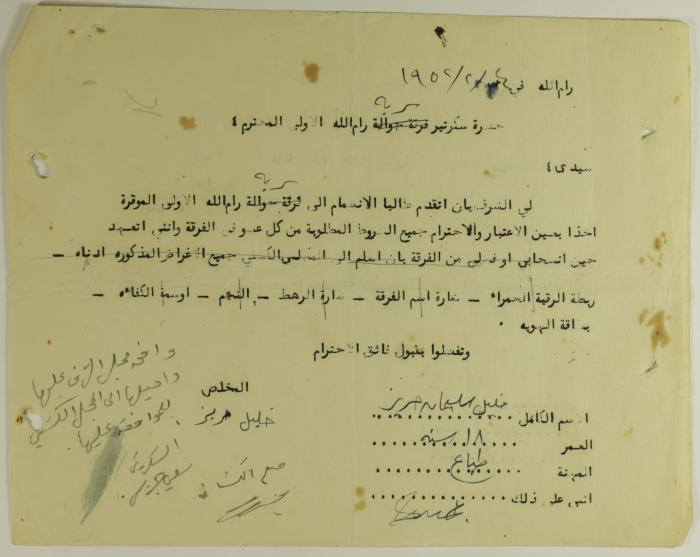 رام الله في ١٩٥٢/٢/
سرية
حضرة سكرتير فرقة جوالة رام الله الاولى المحترم ،
سيدي ،
سرية
لي الشرف بان اتقدم طالبا الانضمام الى فرقة جوالة رام الله الاولى الموقرة
اخذا بعين الاعتبار والاحترام جميع الشروط المطلوبة من كل عضو في الفرقة وانني اتعهد
حين انسحابي او فصلي من الفرقة بان اسلم الى المجلس الكشفي جميع الاغراض المذكوره ادناه _
ربطة الرقبة الحمراء _ شارة اسم الفرقة _ شارة الرهط _ النجم _ اوسمة الكفاءه _
بطاقة الهويه .
وتفضلوا بقبول فائق الاحترام
المخلص
خليل حريز
الاسم الكامل خليل سليمان حريز
العمر ١٨ سنة
المهنة طباع
اثني على ذلك
وافق مجلس الفرق عليها
واحيلها الى المجلس الكشفي
للموافقة عليها
السكرتير